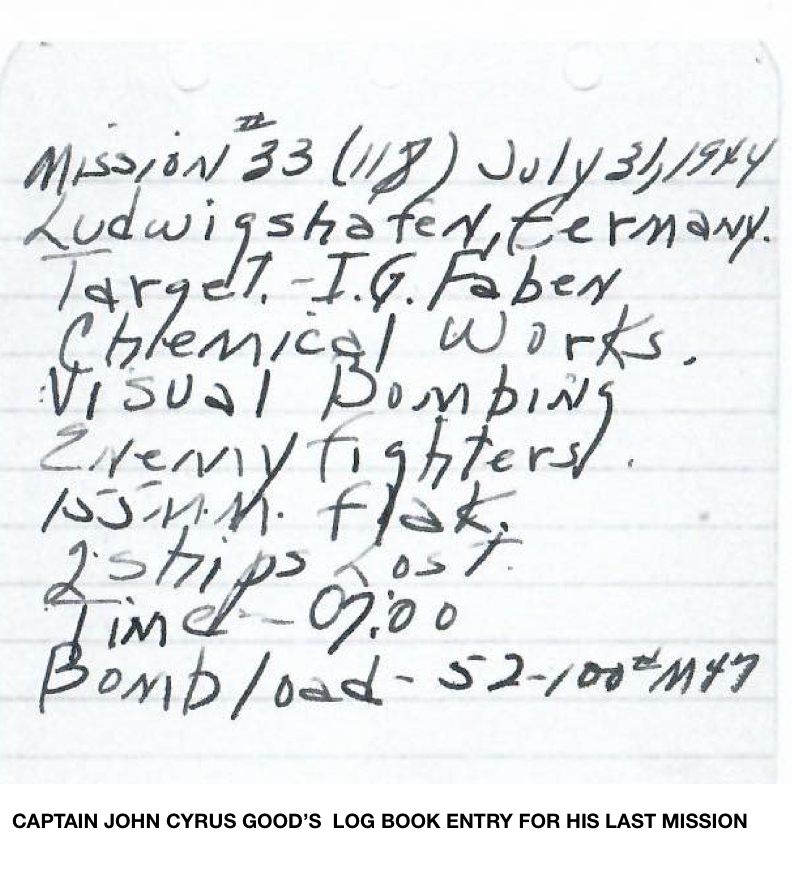 Mission #33 (118) July 31, 1944
Ludwigshafen, Germany.
Target. - I.G. Faben
Chlemical Works.
Visual Bombing
Enemy fighters.
155 M.M. flak.
2 ships Lost.
Time - 07:00
Bomb load - 52-100# M47
CAPTAIN JOHN CYRUS GOOD'S LOG BOOK ENTRY FOR HIS LAST MISSION